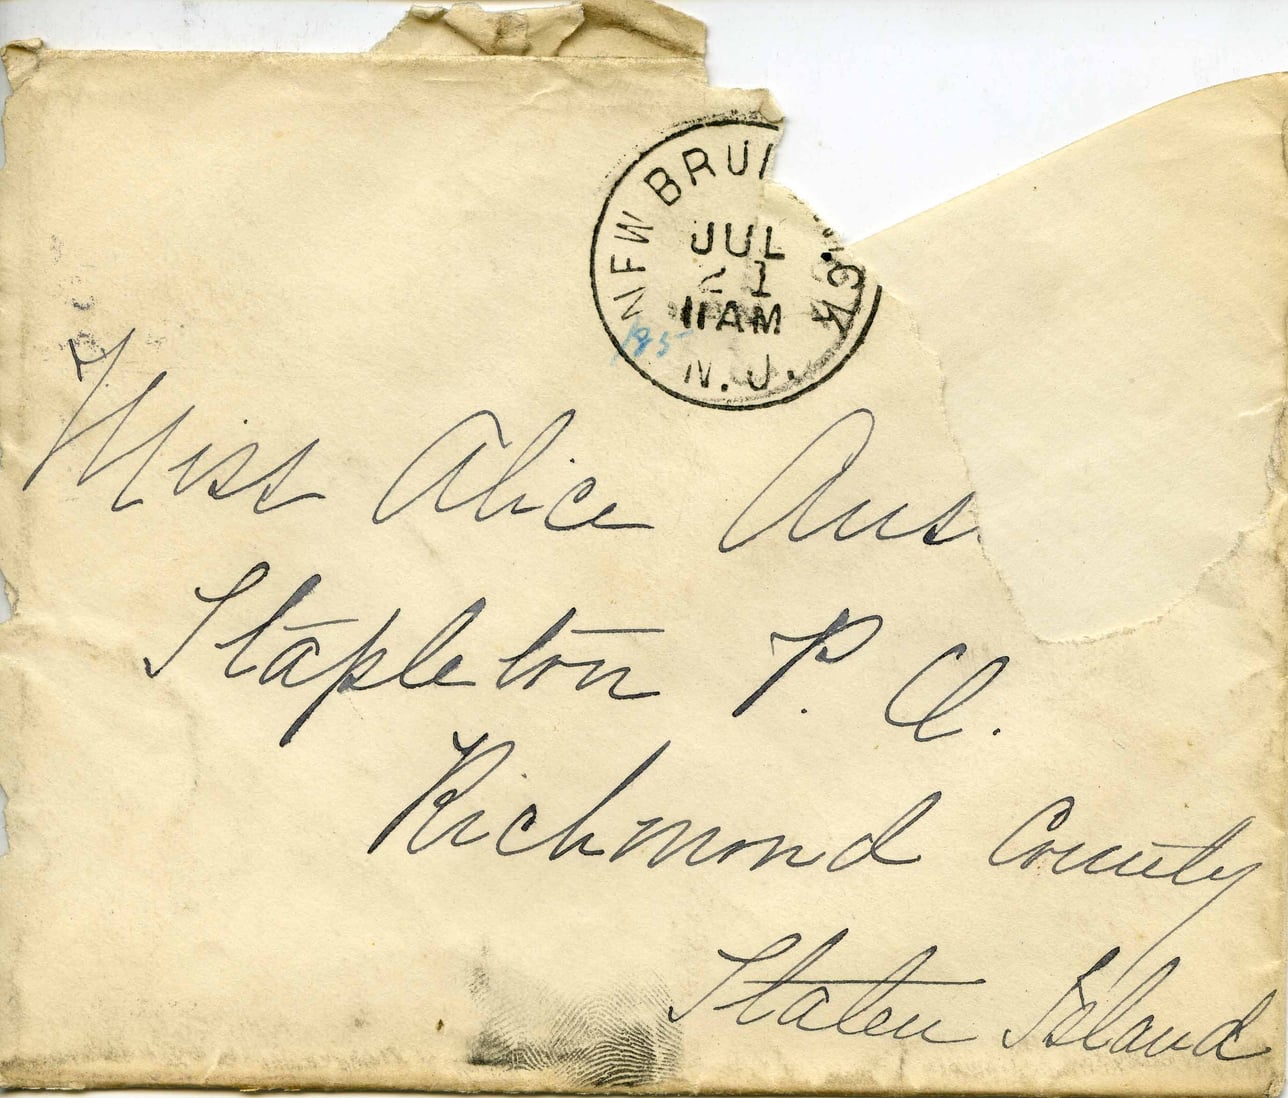 NEW BRUN
JUL
21
11AM
N.J.
185
Miss Alice Aus
Stapleton P. O.
Richmond County
Staten Island